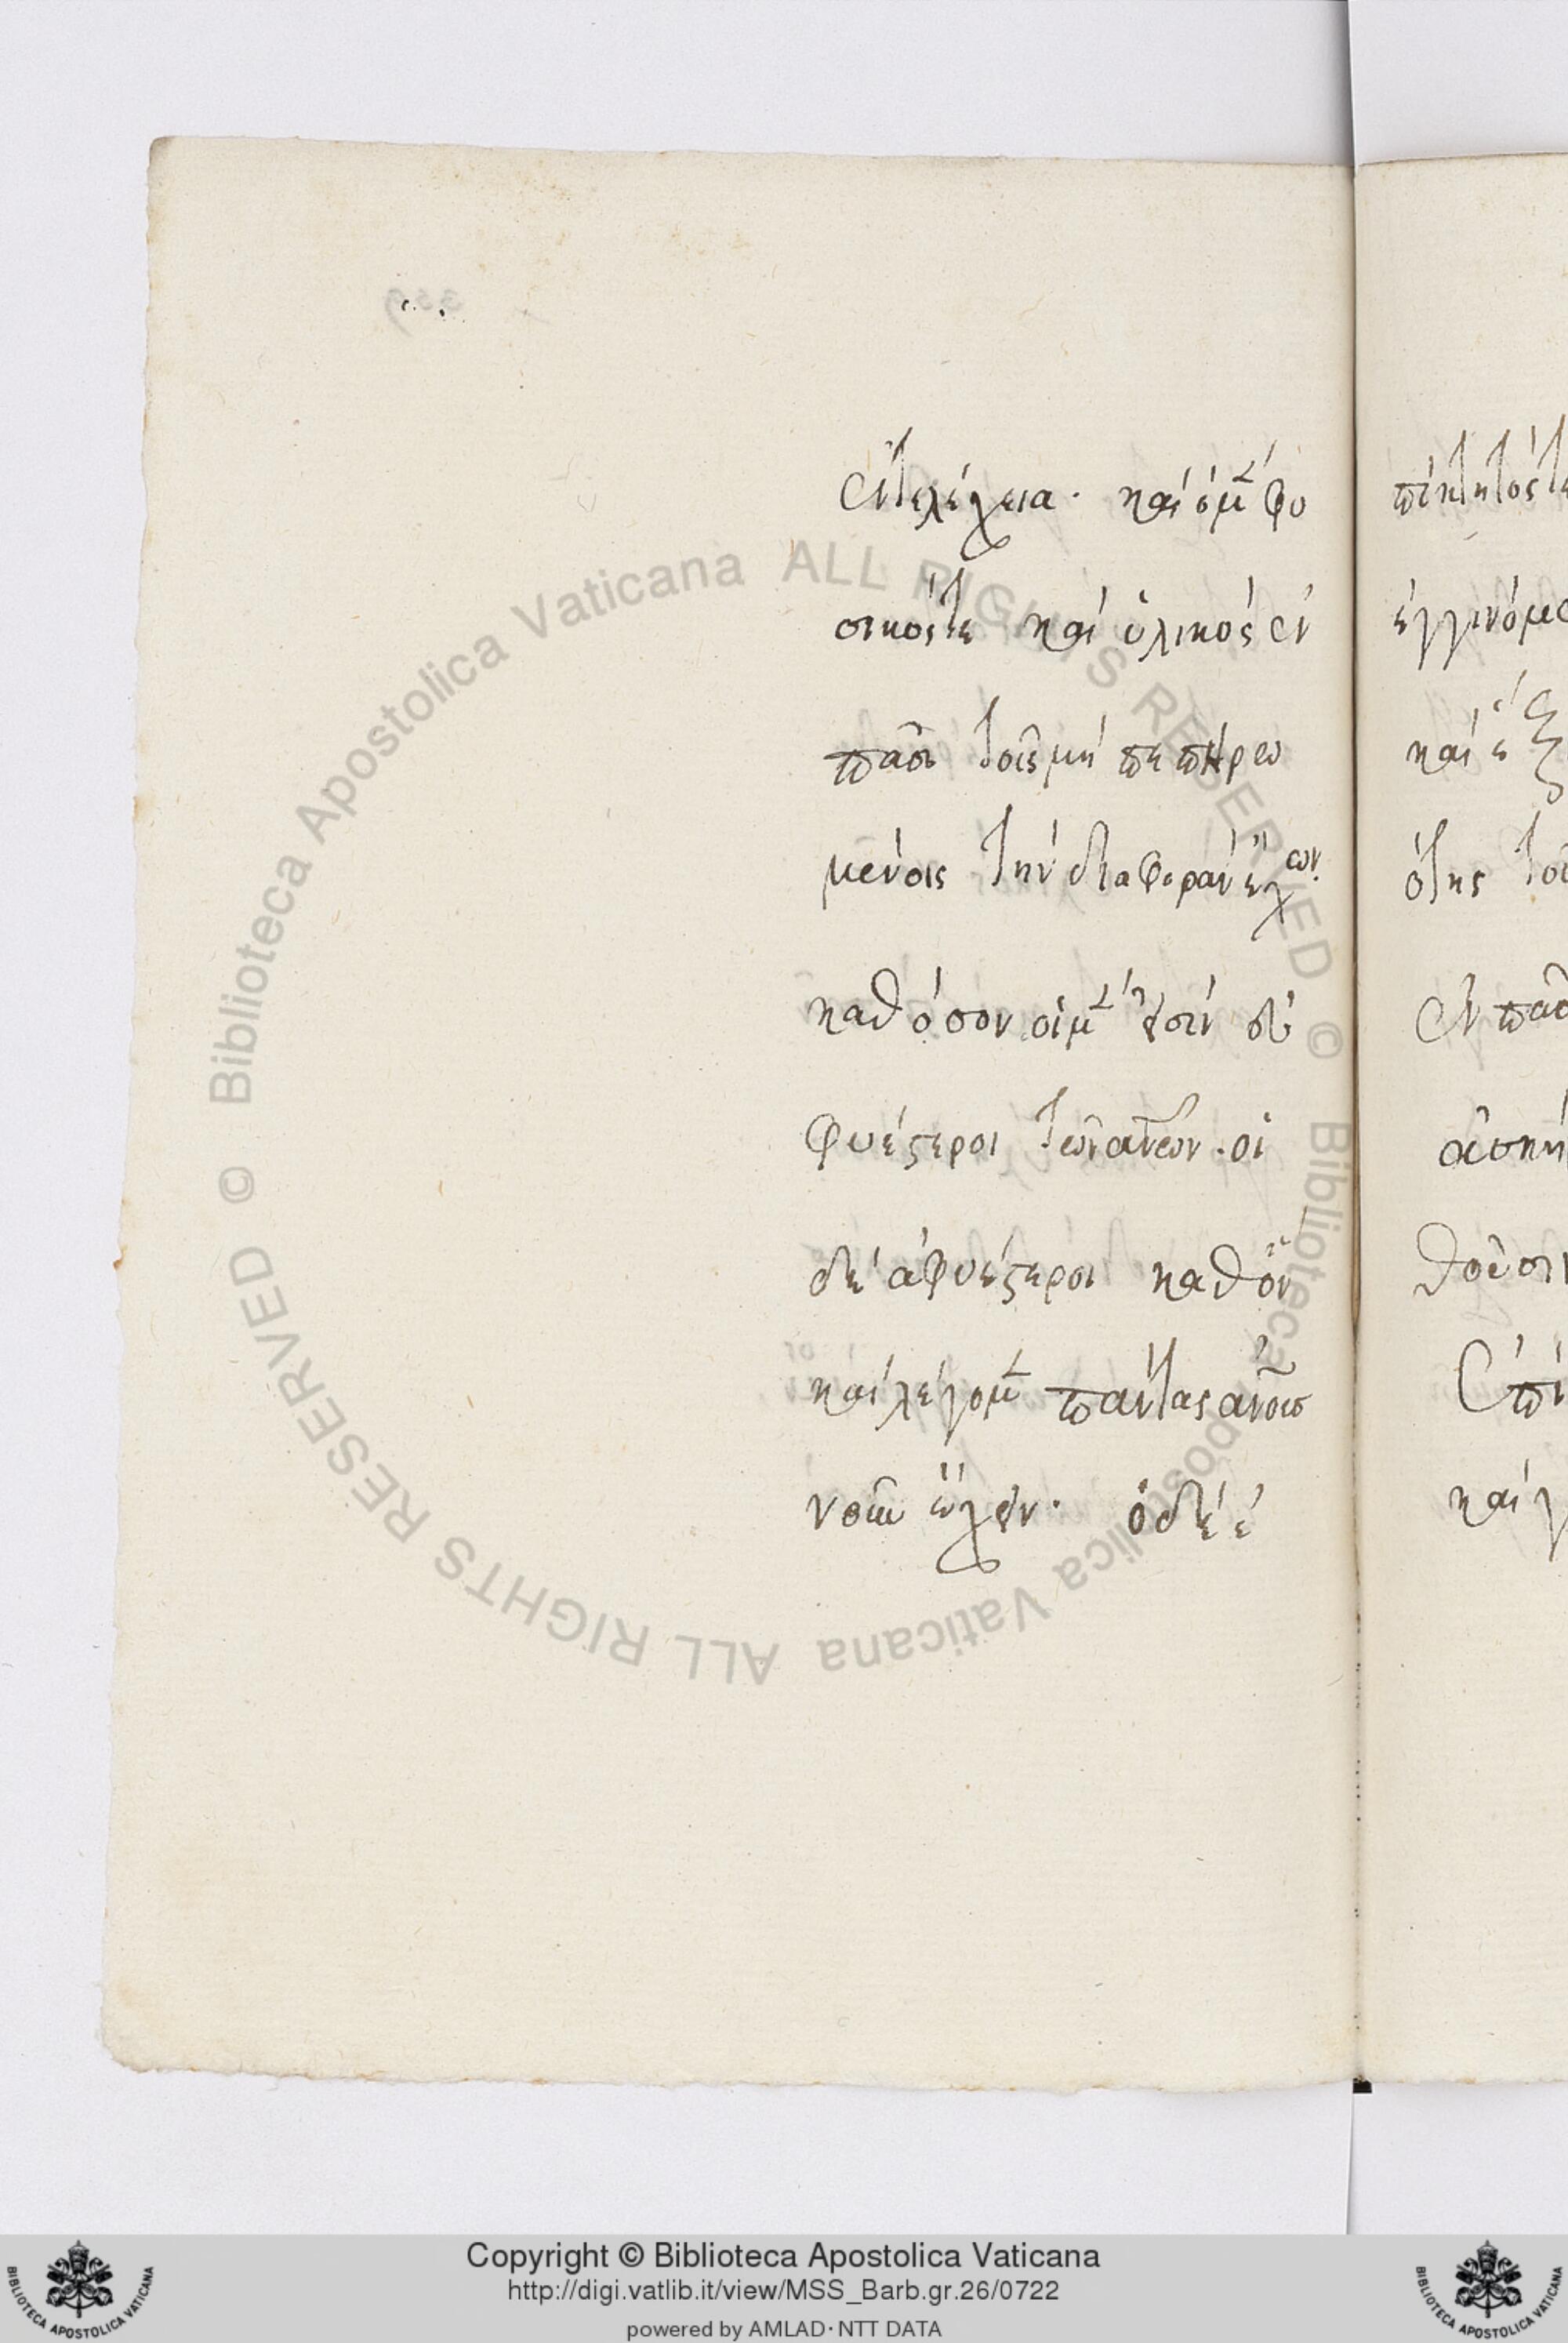 ἐντελέχεια. καὶ ὁ μὲν φυ
σικός τε καὶ ὑλικὸς ἐν
πᾶσι τοῖς μὴ πεπηρω
μένοις τὴν διαφορὰν ἔχων.
καθ όσον οἱ μέν εἰσιν εὐ
φυέστεροι τῶν ἀνων. οἱ
δὲ ἀφυέστεροι καθ ὃν
καὶ λέγομεν πάντας ἀνους
νοῦν ἔχειν. ὁ δὲ ἐ
πίκτητός τε
ἐγγινόμε
καὶ ἕξ
ότης το
ἐν πᾶσ
ἀσκή
θοῦσι
καὶ γ
Biblioteca Apostolica Vaticana ALL RIGHTS RESERVED ©
Biblioteca Apostolica Vaticana ALL RIGHTS RESERVED ©
Copyright © Biblioteca Apostolica Vaticana
http://digi.vatlib.it/view/MSS_Barb.gr.26/0722
powered by AMLAD·NTT DATA
BIBLIOTECA APOSTOLICA VATICANA
BIBLIOTECA APOSTOLICA VATICANA